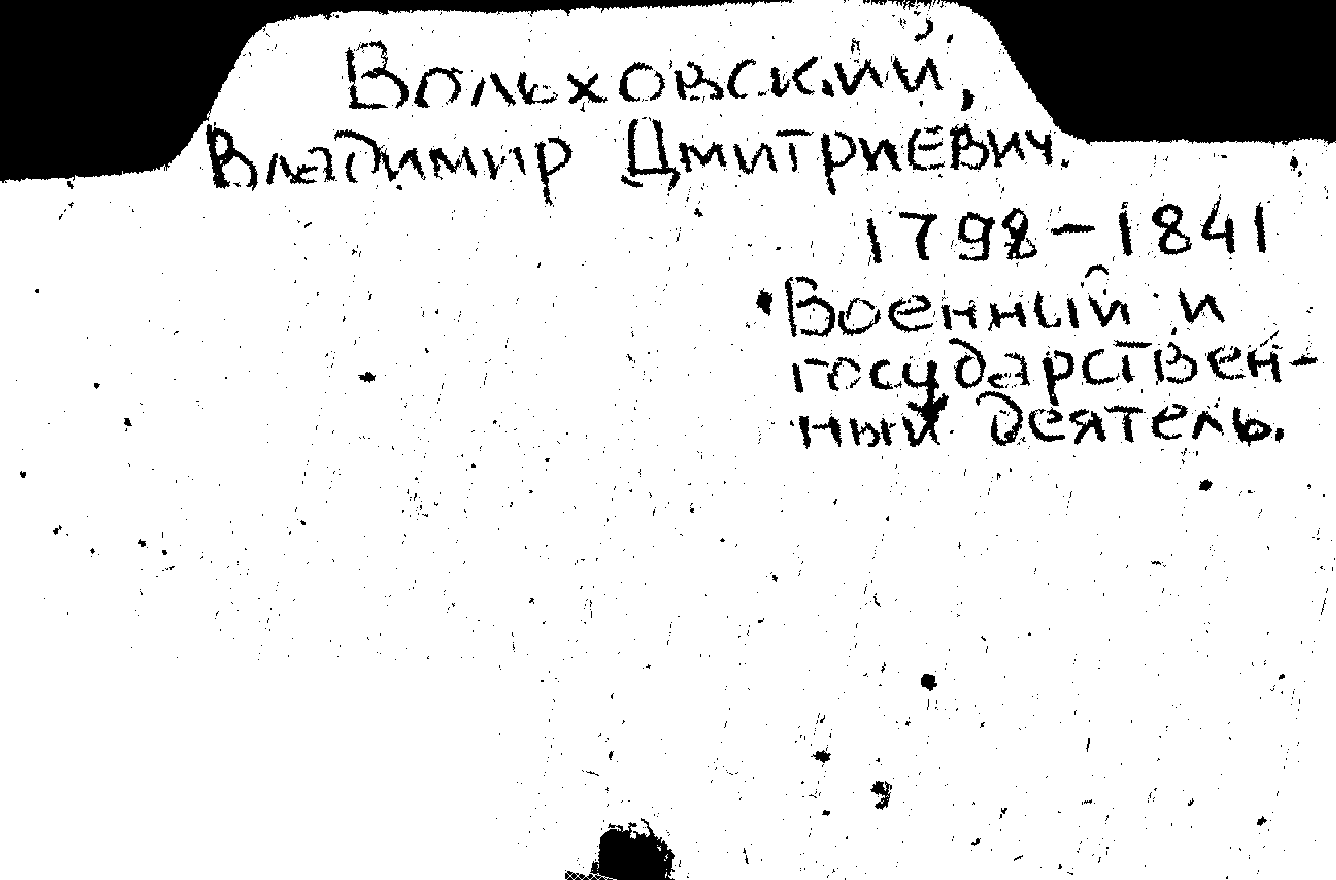 Вольховский,
Владимир Дмитриевич.
1798-1841
Военный и
государствен-
ный деятель.